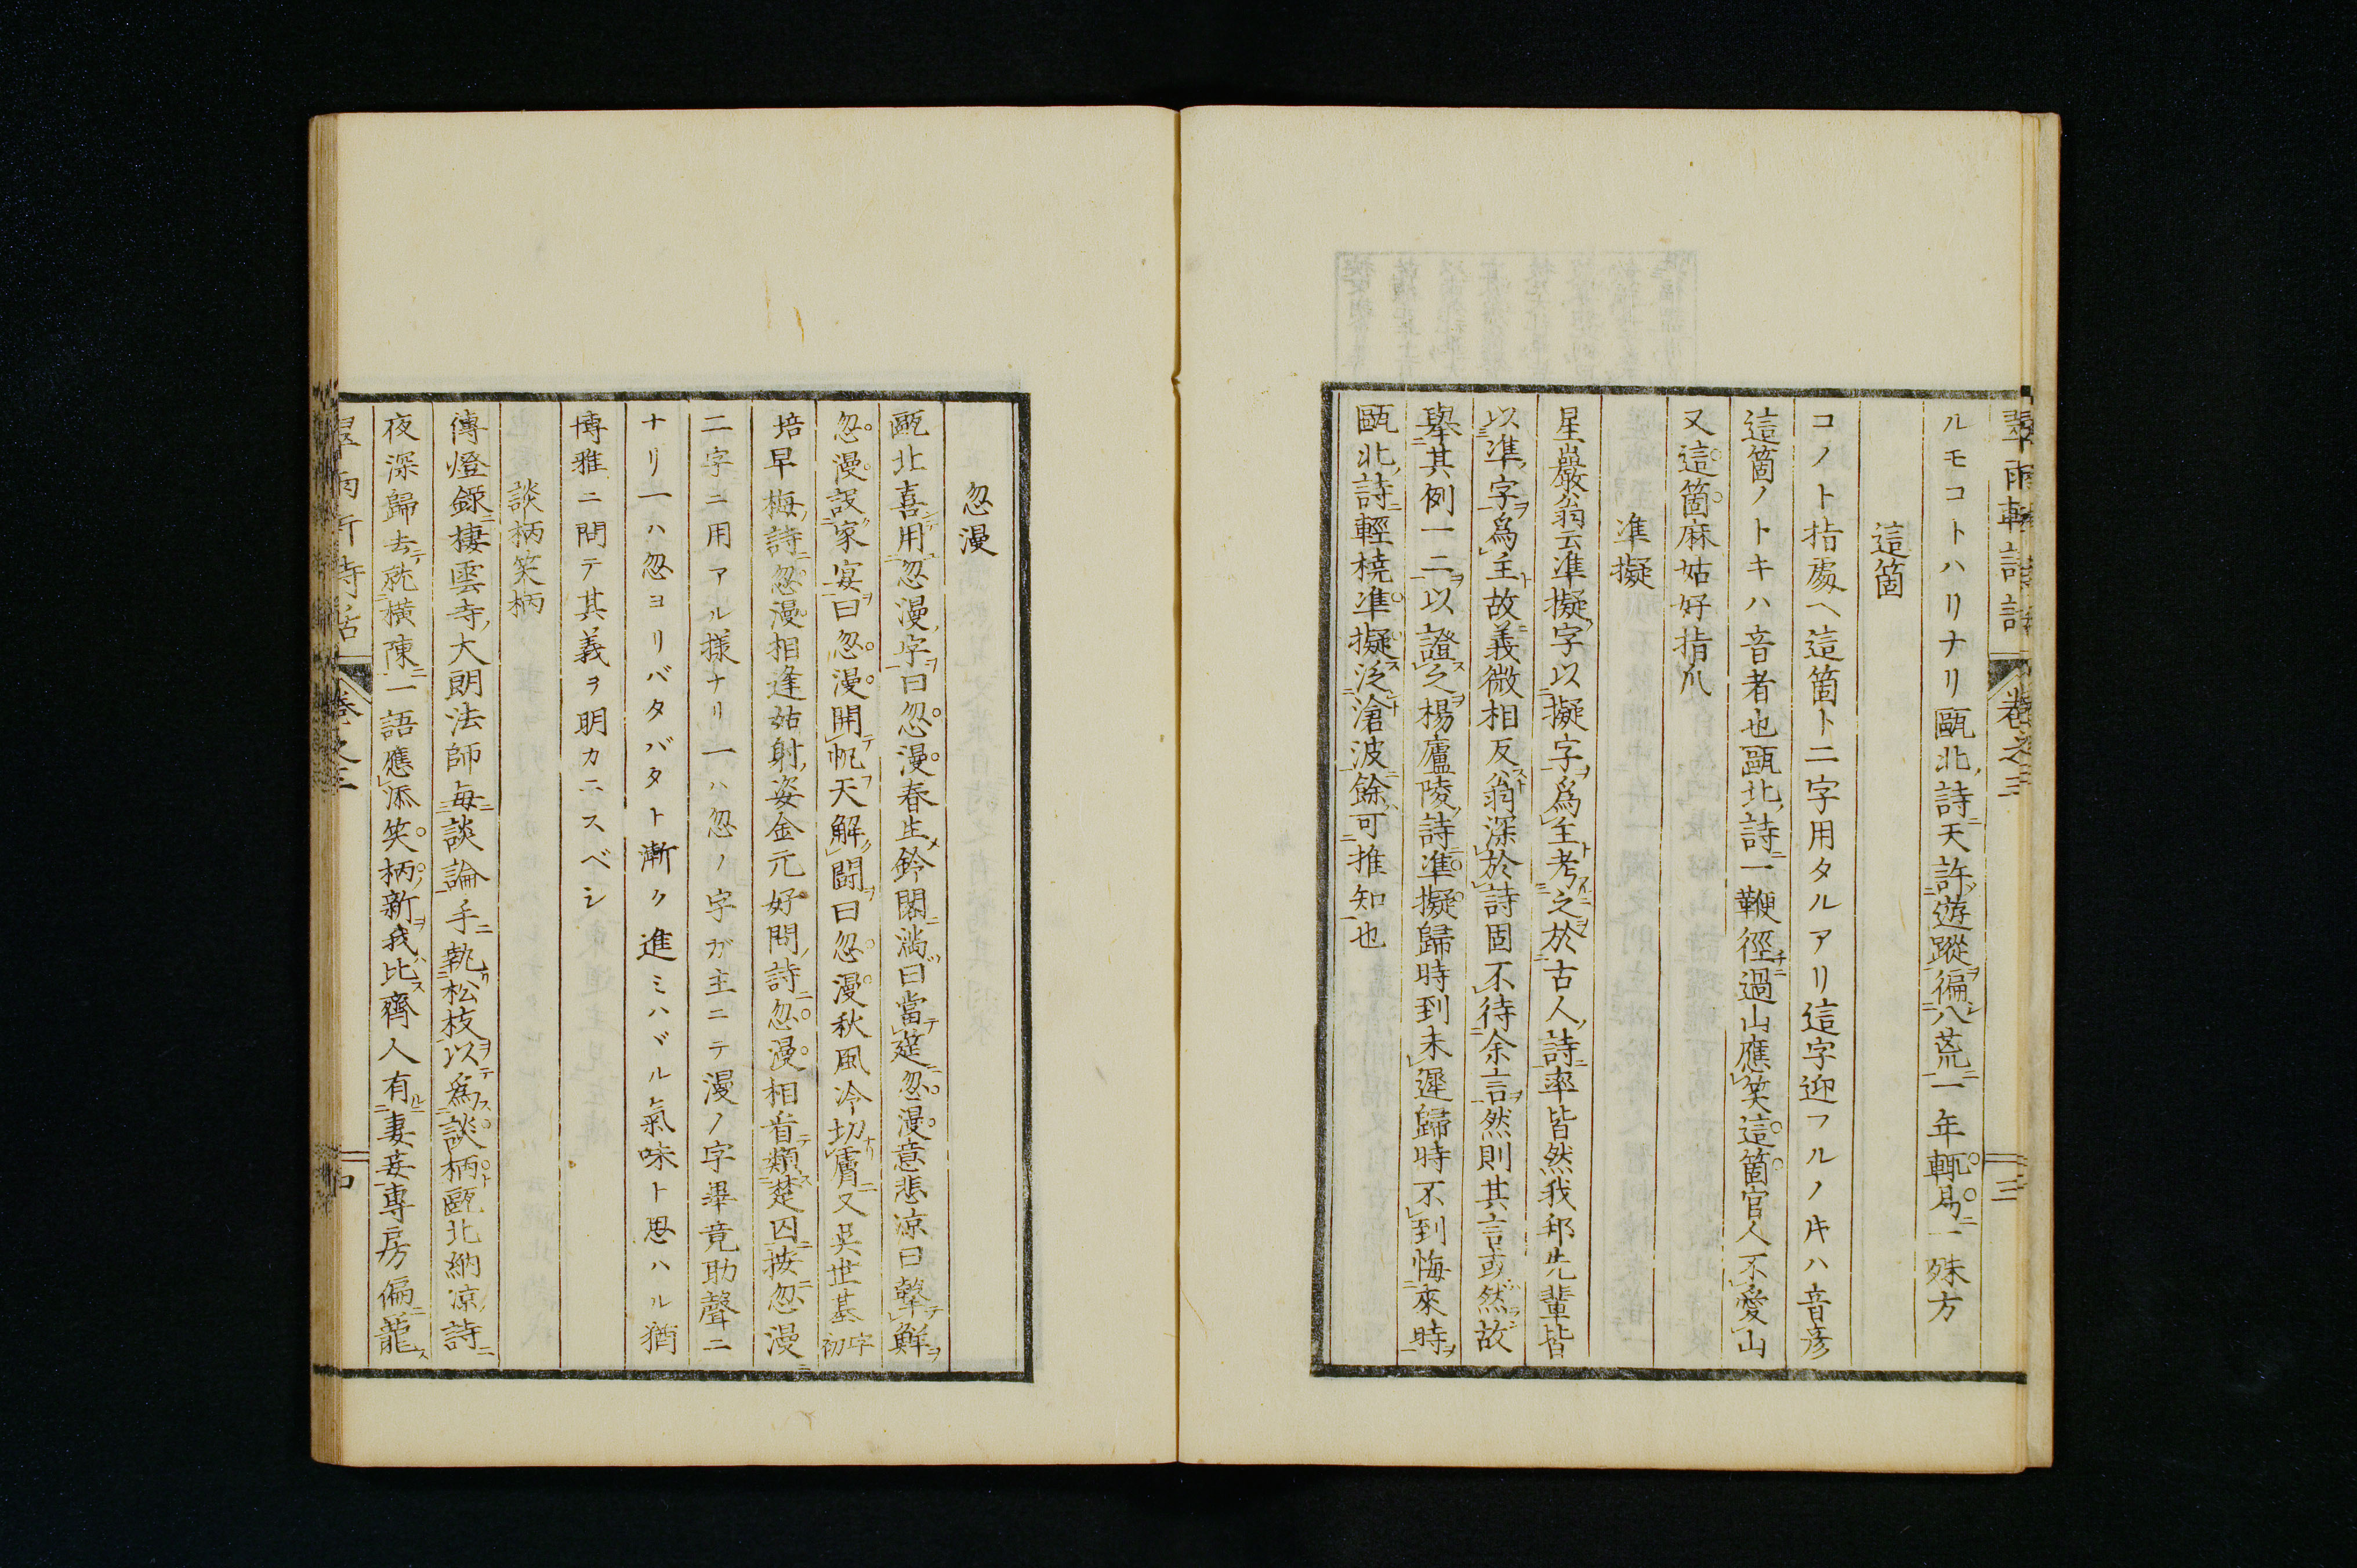 翠雨軒詩話 卷之三 三
ルモコトハリナリ甌北ノ詩ニ天許遊蹤徧八荒一年輒易一殊方
這箇
コノト指處ヘ這箇ト二字用タルアリ這字迎フルノ寸ハ音彦
這箇ノトキハ音者也甌北ノ詩ニ一鞭徑過山應笑這箇官人不愛山
又這箇麻姑好指爪
凖擬
星巖翁云凖擬ノ字以擬字爲主考之於古人ノ詩率皆然我邦先輩皆
以凖ノ字爲主故義微相反翁深於詩固不待余言然則其言或然故
擧其例一二以證之楊廬陵ノ詩凖擬歸時到未遲歸時不到悔來時
甌北ノ詩輕橈凖擬泛滄波餘可推知也
忽漫
甌北喜用忽漫ノ字曰忽漫春生鈴閣滿曰當筵忽漫意悲凉曰擊鮮
忽漫設家宴曰忽漫開帆天解鬪曰忽漫秋風冷切膚又吳世基字初
培早梅ノ詩忽漫相逢姑射ノ姿金元好問ノ詩忽漫相看類楚囚按忽漫
二字ニ用アル樣ナリ一ハ忽ノ字ガ主ニテ漫ノ字畢竟助聲ニ
ナリ一ハ忽ヨリバタバタト漸ク進ミハヾル氣味ト思ハル猶
博雅ニ問テ其義ヲ明カニスベシ
談柄笑柄
傳燈錄棲雲寺ノ大朗法師每談論手執松枝以爲談柄甌北納凉ノ詩
夜深歸去就橫陳一語應添笑柄新我比齊人有妻妾專房偏寵